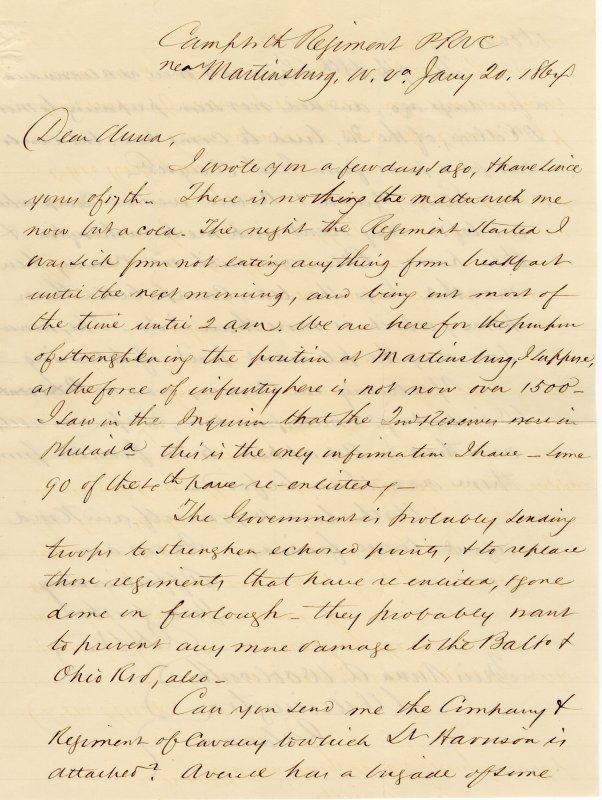 Camp 4th Regiment PRVC
near Martinsburg, W. Va. Jany 20. 1864
Dear Anna,
I wrote you a few days ago, & have since
yours of 17th. There is nothing the matter with me
now but a cold. The night the Regiment started I
was sick from not eating anything from breakfast
until the next morning, and being out most of
the time until 2 a.m. We are here for the purpose
of strengthening the position at Martinsburg, I suppose,
as the force of infantry here is not now over 1500 -
I saw in the Inquirer that the 2nd Reserves were in
Philada this is the only information I have - some
90 of the 4th have re-enlisted -
The Government is probably sending
troops to strengthen exposed points, & to replace
those regiments that have re enlisted, & gone
home on furlough - they probably want
to prevent any more damage to the Balto &
Ohio Rrd, also -
Can you send me the Company &
Regiment of Cavalry to which Lt Harrison is
attached? Averell has a brigade of some